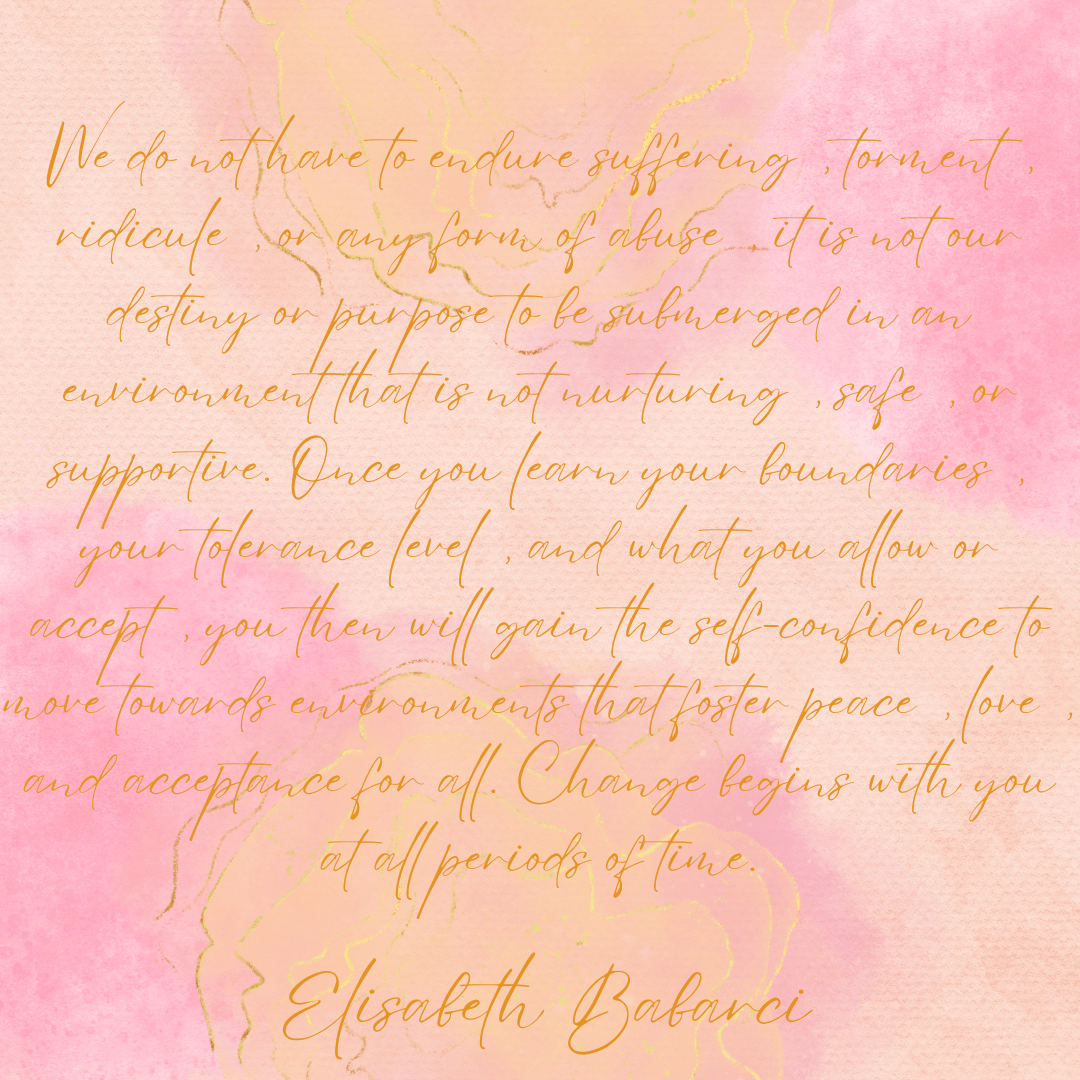 We do not have to endure suffering , torment ,
ridicule , or any form of abuse , it is not our
destiny or purpose to be submerged in an
environment that is not nurturing , safe , or
supportive. Once you learn your boundaries ,
your tolerance level , and what you allow or
accept , you then will gain the self-confidence to
move towards environments that foster peace , love ,
and acceptance for all. Change begins with you
at all periods of time.
Elisabeth Babarci